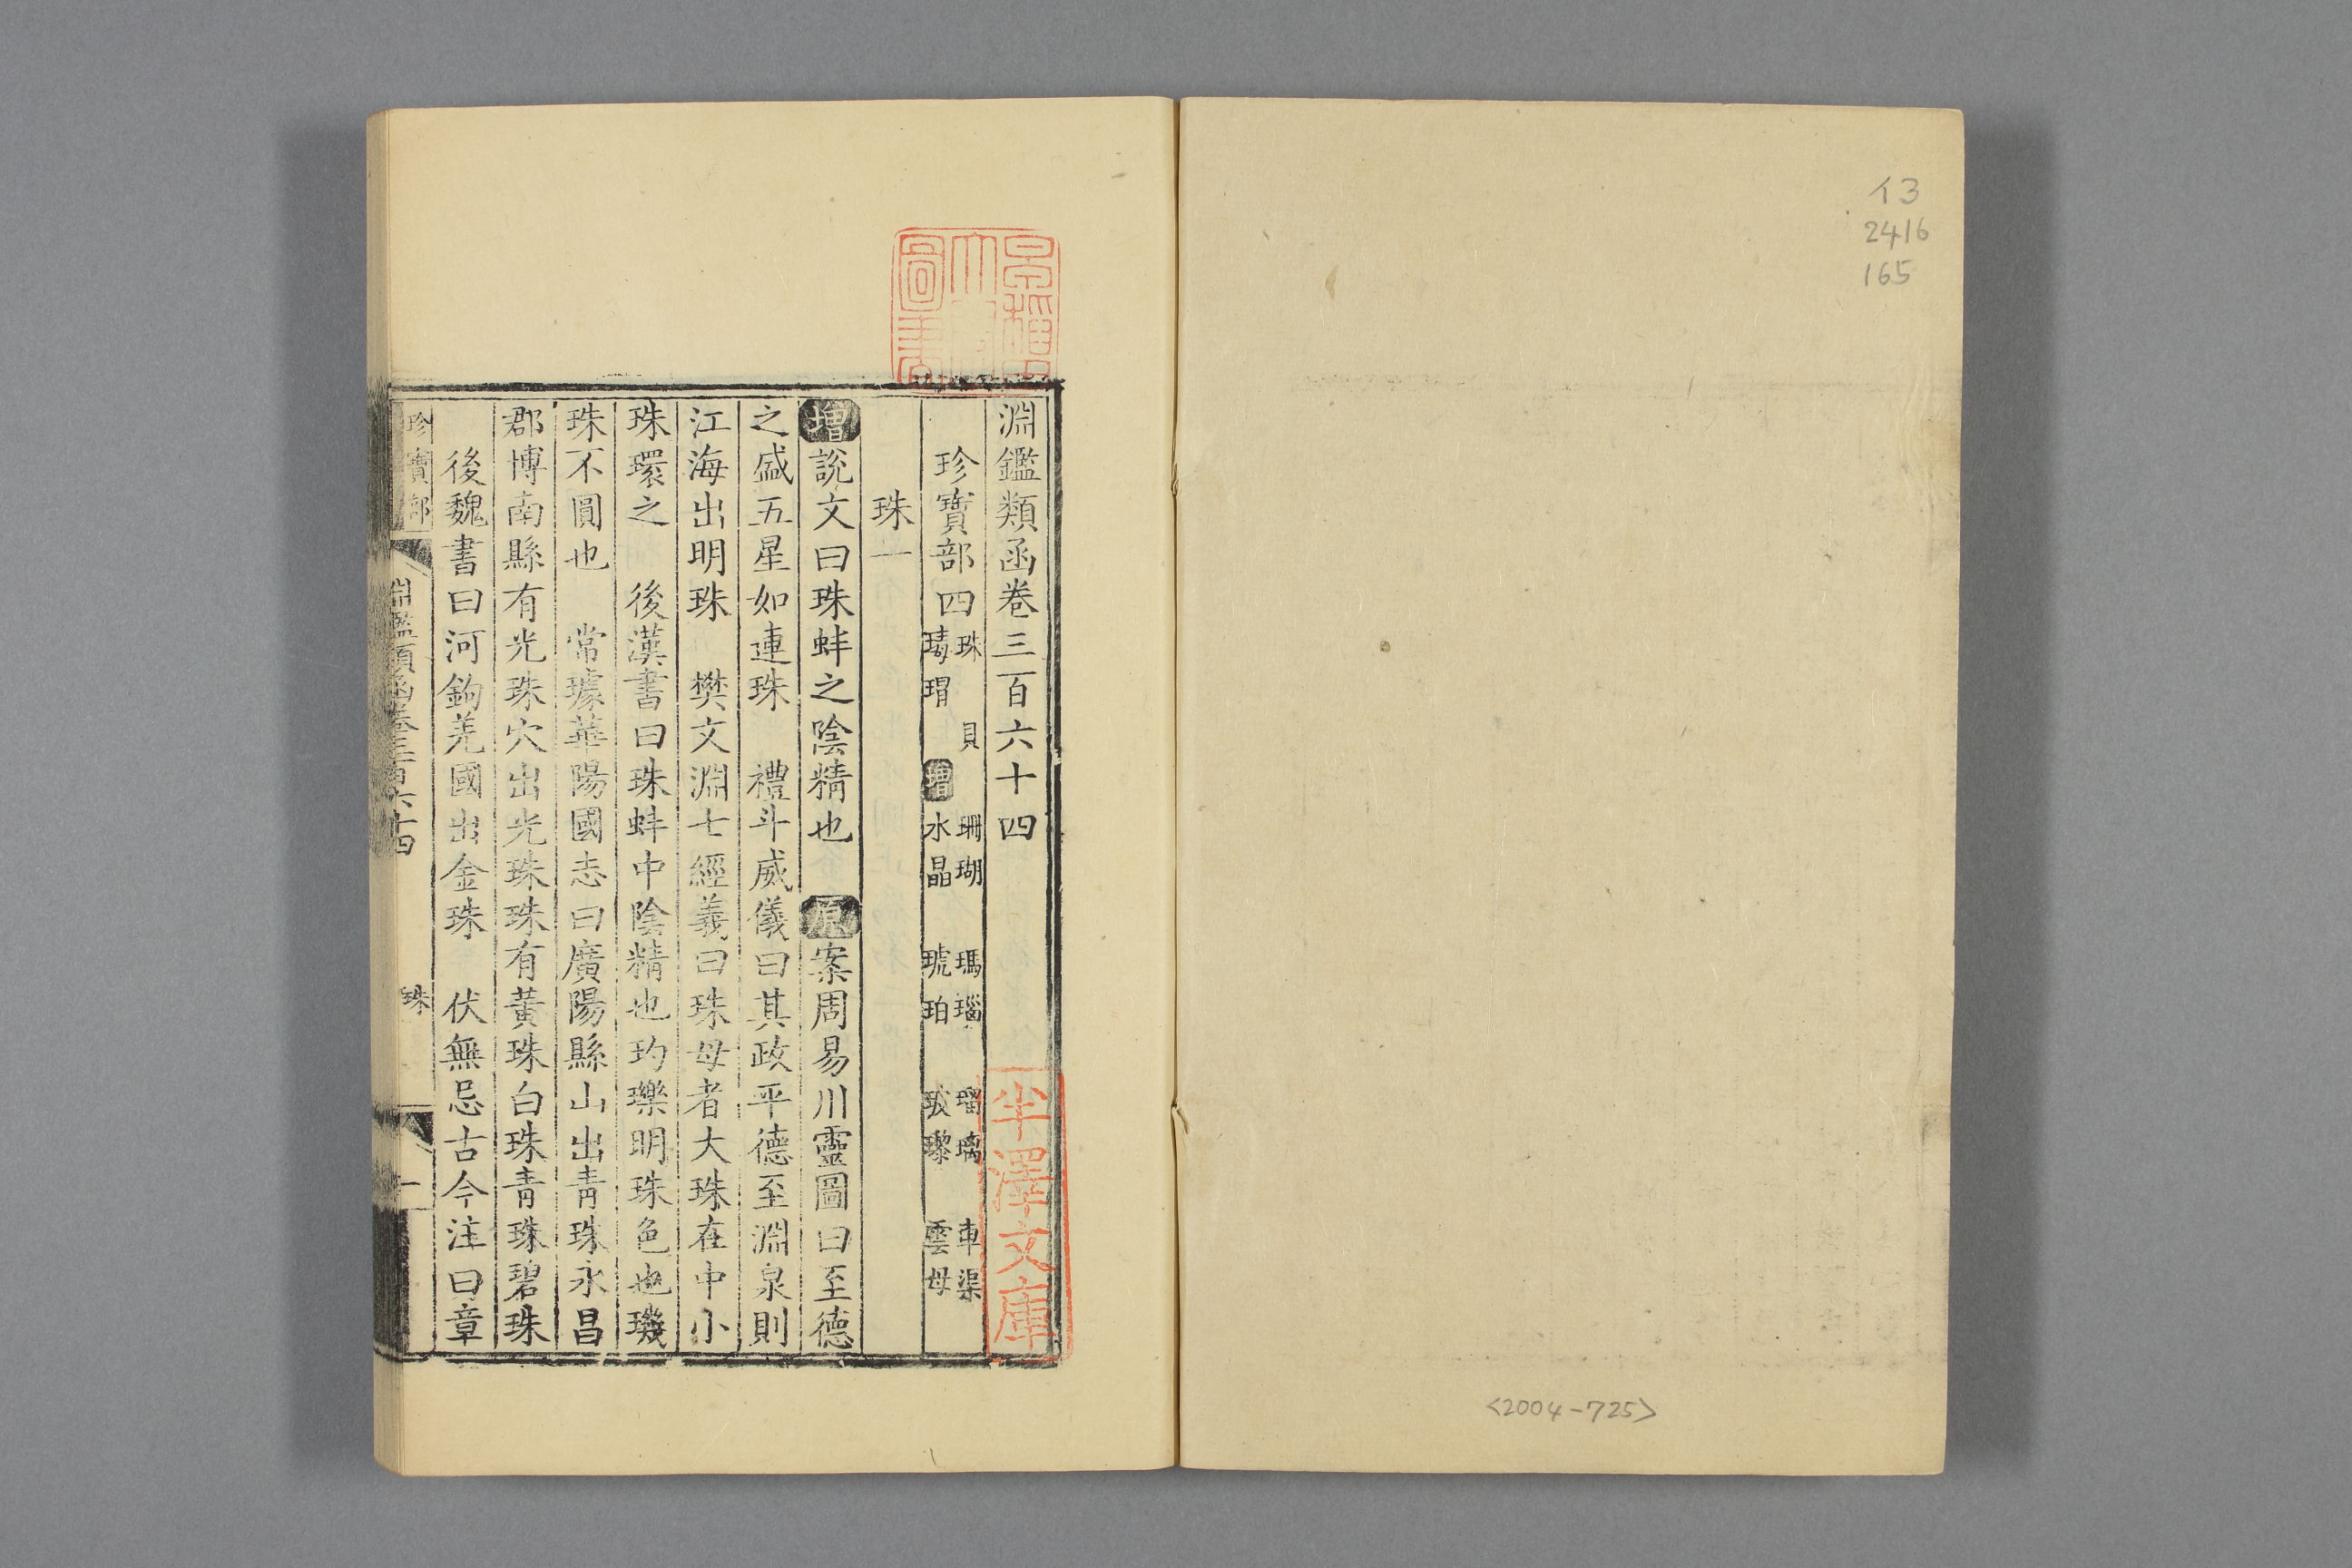 イ3
2416
165
<2004-725>
淵鑑類函卷三百六十四
珍寶部四 珠 貝 珊瑚 瑪瑙 瑠璃 車渠
瑇瑁 增 水晶 琥珀 玻瓈 雲母
珠一
增說文曰珠蚌之陰精也 原案周易川靈圖曰至德
之盛五星如連珠 禮斗威儀曰其政平德至淵泉則
江海出明珠 樊文淵七經義曰珠母者大珠在中小
珠環之 後漢書曰珠蚌中陰精也玓瓅明珠色也璣
珠不圓也 常璩華陽國志曰廣陽縣山出青珠永昌
郡博南縣有光珠穴出光珠珠有黃珠白珠青珠碧珠
後魏書曰河鉤羌國出金珠 伏無忌古今注曰章
珍寶部 淵鑑類函卷三百六十四 珠一 一
半澤文庫